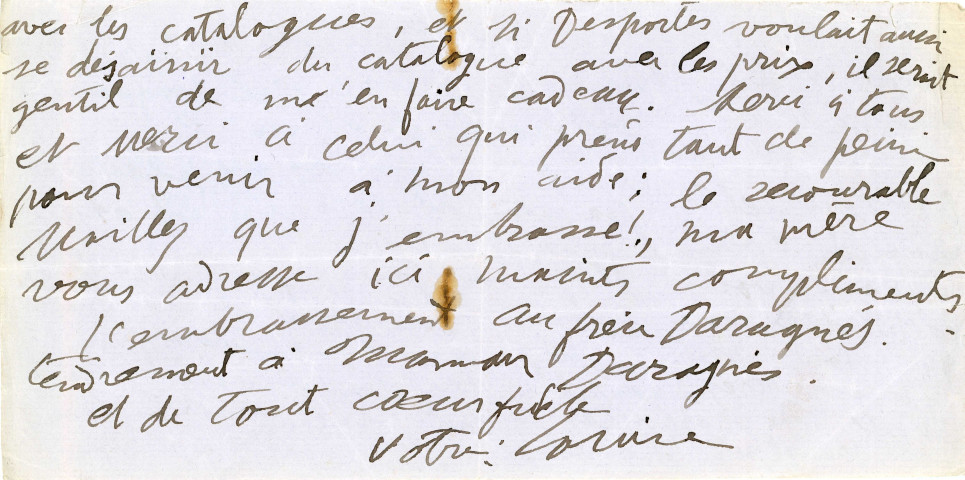 avec les catalogues, et si Desportes voulait aussi
se désaisir du catalogue avec les prix, il serait
gentil de m'en faire cadeau. Merci à tous
et merci à celui qui prend tant de peine
pour venir à mon aide; le secourable
que j'embrasse!, ma mère
vous adresse ici maints compliments.
l'embrassement au frère Daragnès.
tendrement à Maman Daragnès.
et de tout cœur fidèle
votre